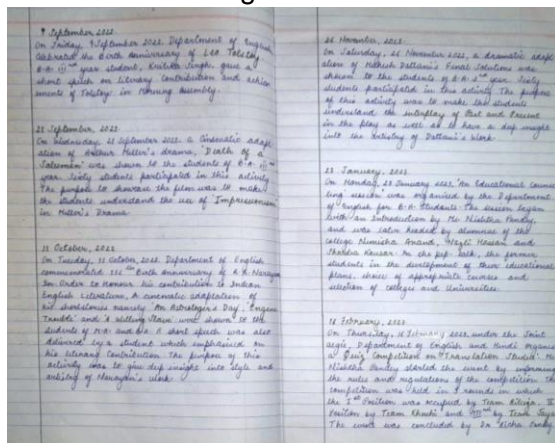 9 September, 2022
On Friday, 9 September 2022, Department of English
Celebrated the Birth anniversary of Leo Tolstoy
B.A. III year student, Krithika Singh, gave a
short speech on Literary Contribution and achiev
ements of Tolstoy in Morning Assembly.
21 September, 2022
On Wednesday, 21 September 2022, a Cinematic adapt
ation of Arthur Miller's drama, 'Death of a
Salesman' was shown to the students of B.A. III
year. Sixty students participated in this activity.
The purpose to showcase the film was to make
the students understand the use of Impressionism
in Miller's Drama.
11 October, 2022
On Tuesday, 11 October, 2022, Department of English
commemorated 116th Birth anniversary of R.K Narayan
In Order to Honour his contribution to Indian
English Literature, A cinematic adaptation of
his shortstories namely 'An Astrologer's Day',
and 'A were shown to the
students of M.A. and B.A. A short speech was also
delivered by a student which emphasised on
his literary Contribution. The purpose of this
activity was to give dep insight into style and
artistry of Narayan's work.
26 November, 2022
On Saturday, 26 November 2022, a dramatic adapt
ation of Mahesh Dattani's Final Solutions was
shown to the students of B.A. year. Sixty
students participated in this activity. The purpose
of this activity was to make the students
understand the interplay of Past and Present
in the play as well as to have a dep insight
into the artistry of Dattani's Work.
23 January, 2023
On Monday, 23 January 2023, 'An Educational Counse
ling' session was organised by the Department
of English for B.A. Students. The session began
with an Introduction by Ms. Nishtha Pandey,
and was later headed by alumnae of the
college Nimisha Anand, Hassan and
Kausar. In the pep talk, the former
students in the development of their educational
plans, choice of appropriate courses and
selection of colleges and Universities.
16 February, 2023
On Thursday, 16 February 2023, under the Joint
aegis, Department of English and Hindi organised
a Quiz Competition on 'Translation Studies'. Ms
Nishtha Pandey started the event by informing
the rules and regulations of the competition. The
competition was held in 3 rounds in which
the Ist Position was occupied by Team II
Position by Team Khushi and by Team
The event was concluded by Dr. Richa Pandey